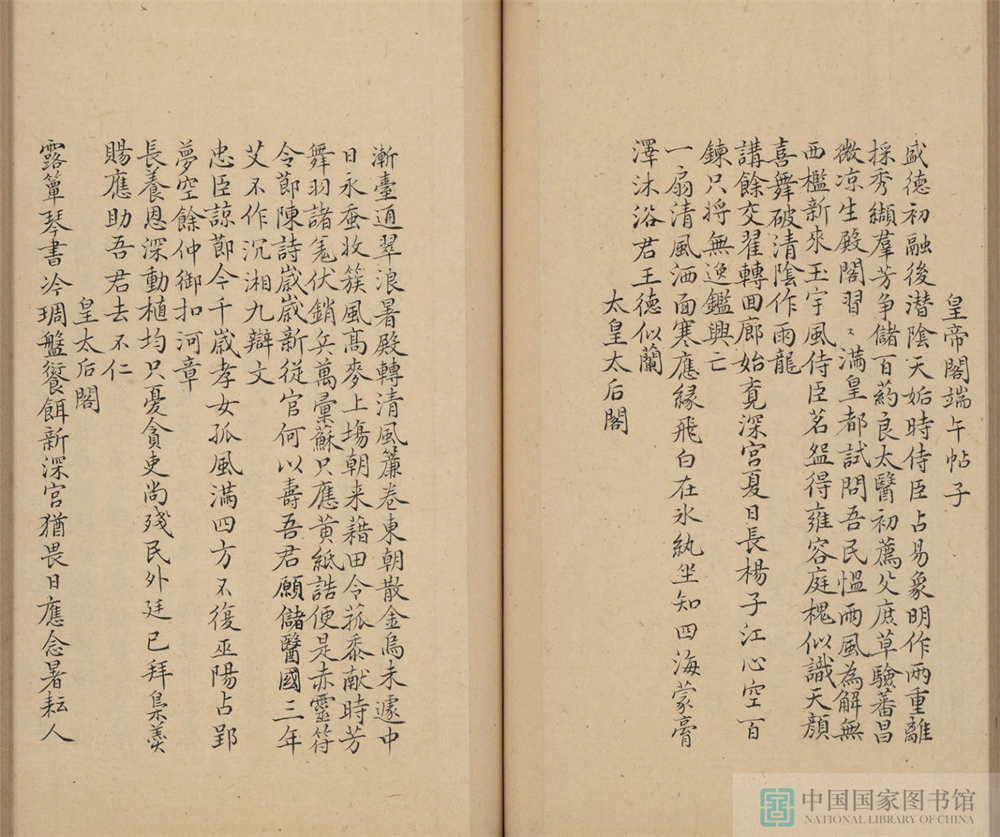 皇帝閣端午帖子
盛德初融後潛陰天姤時侍臣占易象明作兩重離
採秀擷羣芳爭儲百葯良太醫初薦父庶草驗蕃昌
微凉生殿閣習〻滿皇都試問吾民愠雨風為解無
西檻新來玉宇風侍臣茗盌得雍容庭槐似識天顏
喜舞破清陰作雨龍
講餘交翟轉囬廊始覔深宮夏日長楊子江心空百
鍊只将無逸鑑興亡
一扇清風洒面寒應緣飛白在氷紈坐知四海蒙膏
澤沐浴君王德似蘭
太皇太后閣
漸臺通翠浪暑殿轉清風簾卷東朝散金烏未遽中
日永蚕收簇風髙麥上塲朝来藉田令菰黍献時芳
舞羽諸羌伏銷兵萬彙蘇只應黄紙誥便是赤靈符
令節陳詩歲歲新從官何以壽吾君願儲醫國三年
艾不作沉湘九辯文
忠臣諒節今千歲孝女孤風滿四方不復巫陽占郢
夢空餘仲御扣河章
長養恩深動植均只憂貪吏尚殘民外廷已拜梟羹
賜應助吾君去不仁
皇太后閣
露簟琴書冷琱盤餐餌新深宫猶畏日應念暑耘人
中国国家图书馆
NATIONAL LIBRARY OF CHINA